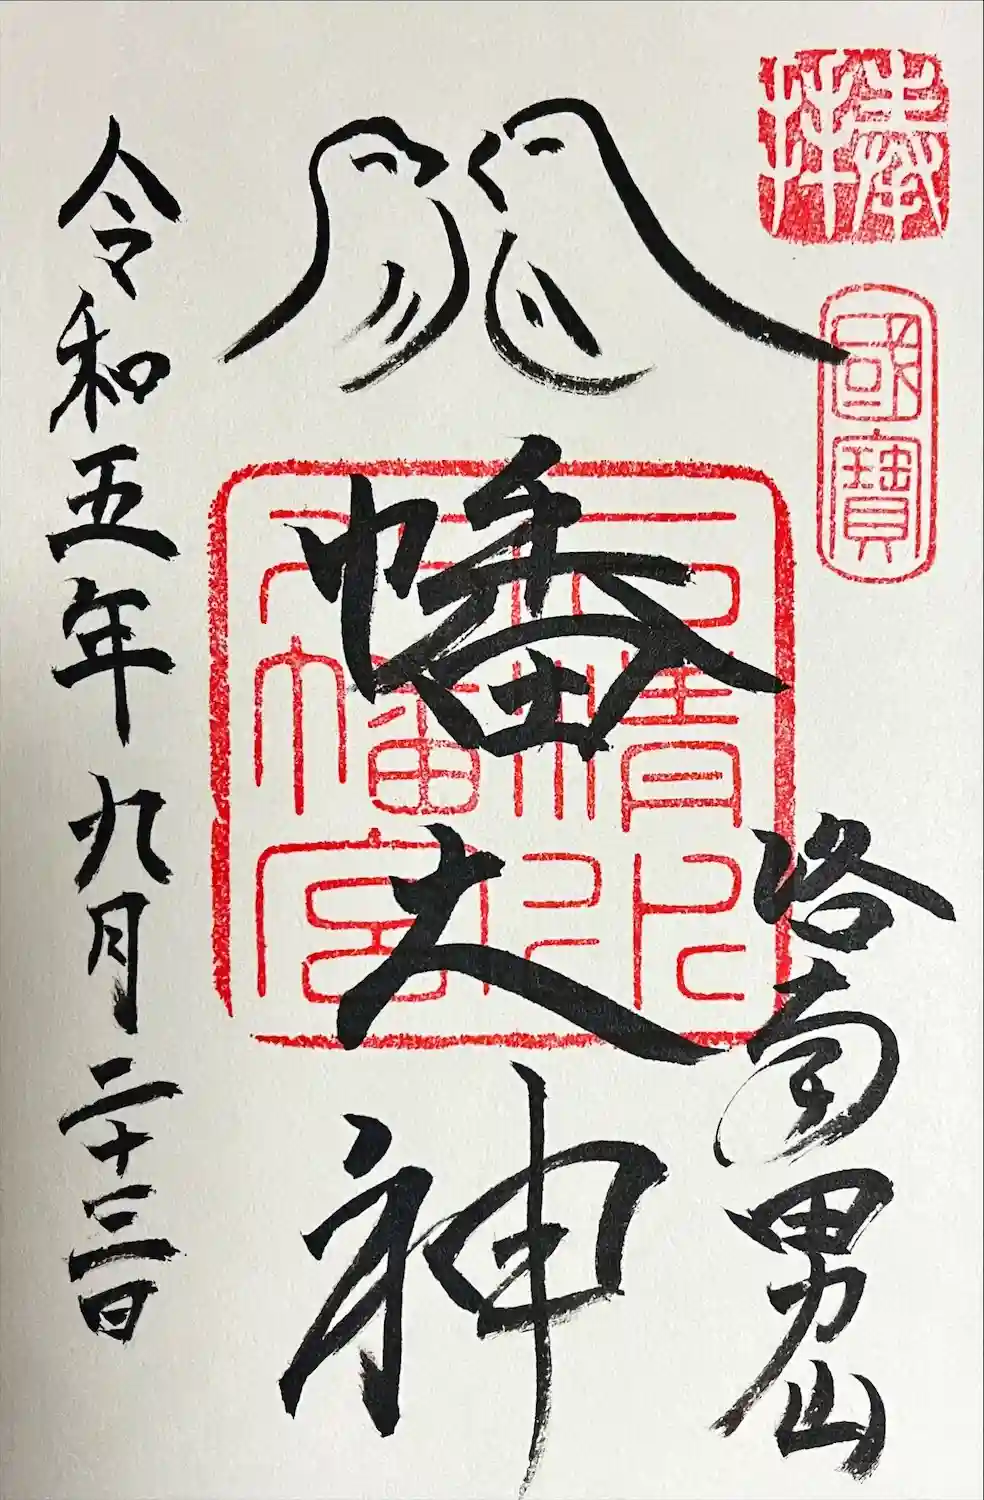 奉拝
國寶
洛南男山
八幡大神
石清水八幡宮印
令和五年九月二十三日